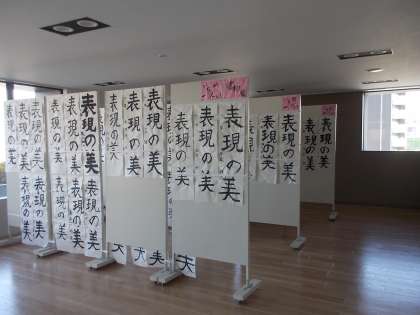 表現の美
表現の美
表現の美
表現の美
表現の美
表現の美
表現の美
表現の美
表現の美
表現の美
表現の美
表現の美
表現の美
表現の美
表現の美
表現の美
表現の美
表現の美
表現の美